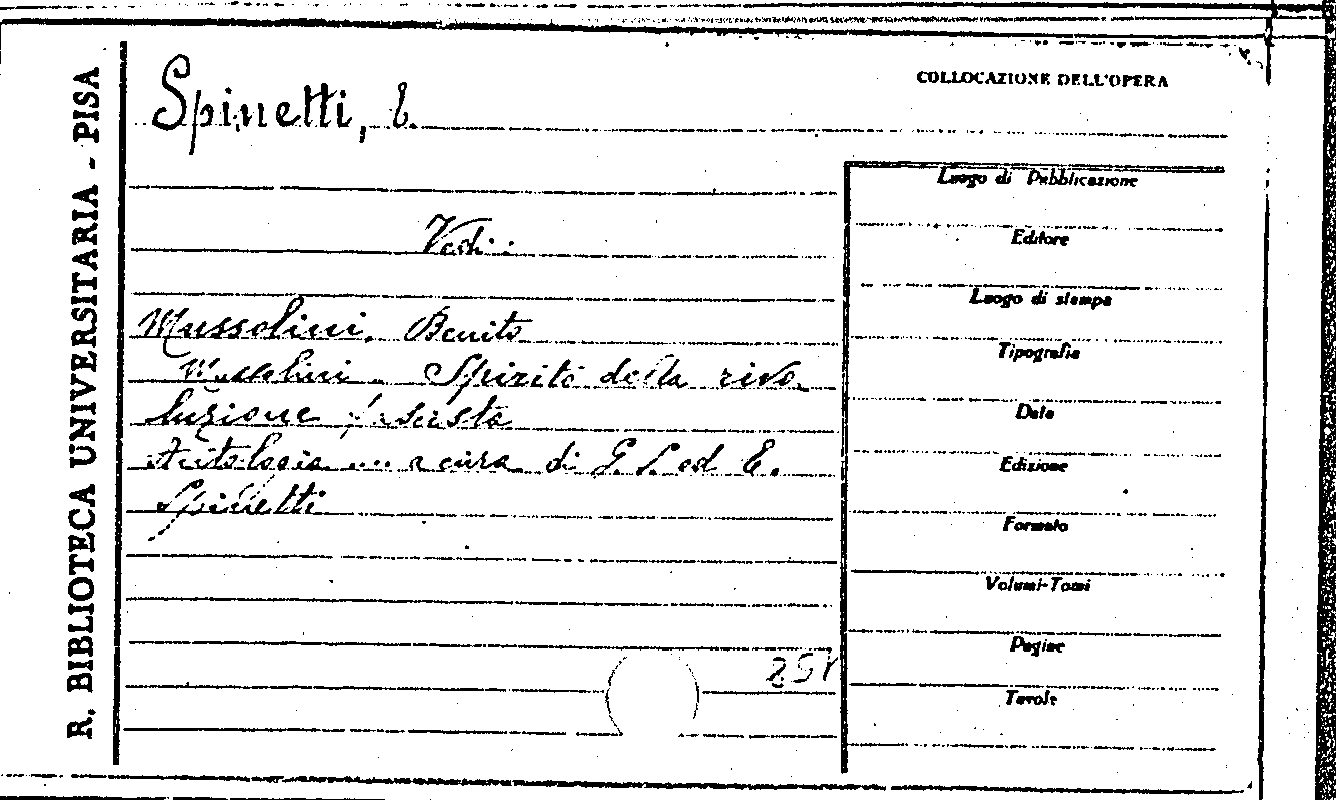 R. BIBLIOTECA UNIVERSITARIA - PISA
Spinetti, E.
COLLOCAZIONE DELL'OPERA
Vedi:
Mussolini, Benito
Mussolini - Spirito della rivo-
luzione fascista
Antologia ... a cura di G. S. ed E.
Spinetti
Luogo di Pubblicazione
Editore
Luogo di stampa
Tipografia
Data
Edizione
Formato
Volumi-Tomi
Pagine
Tavole